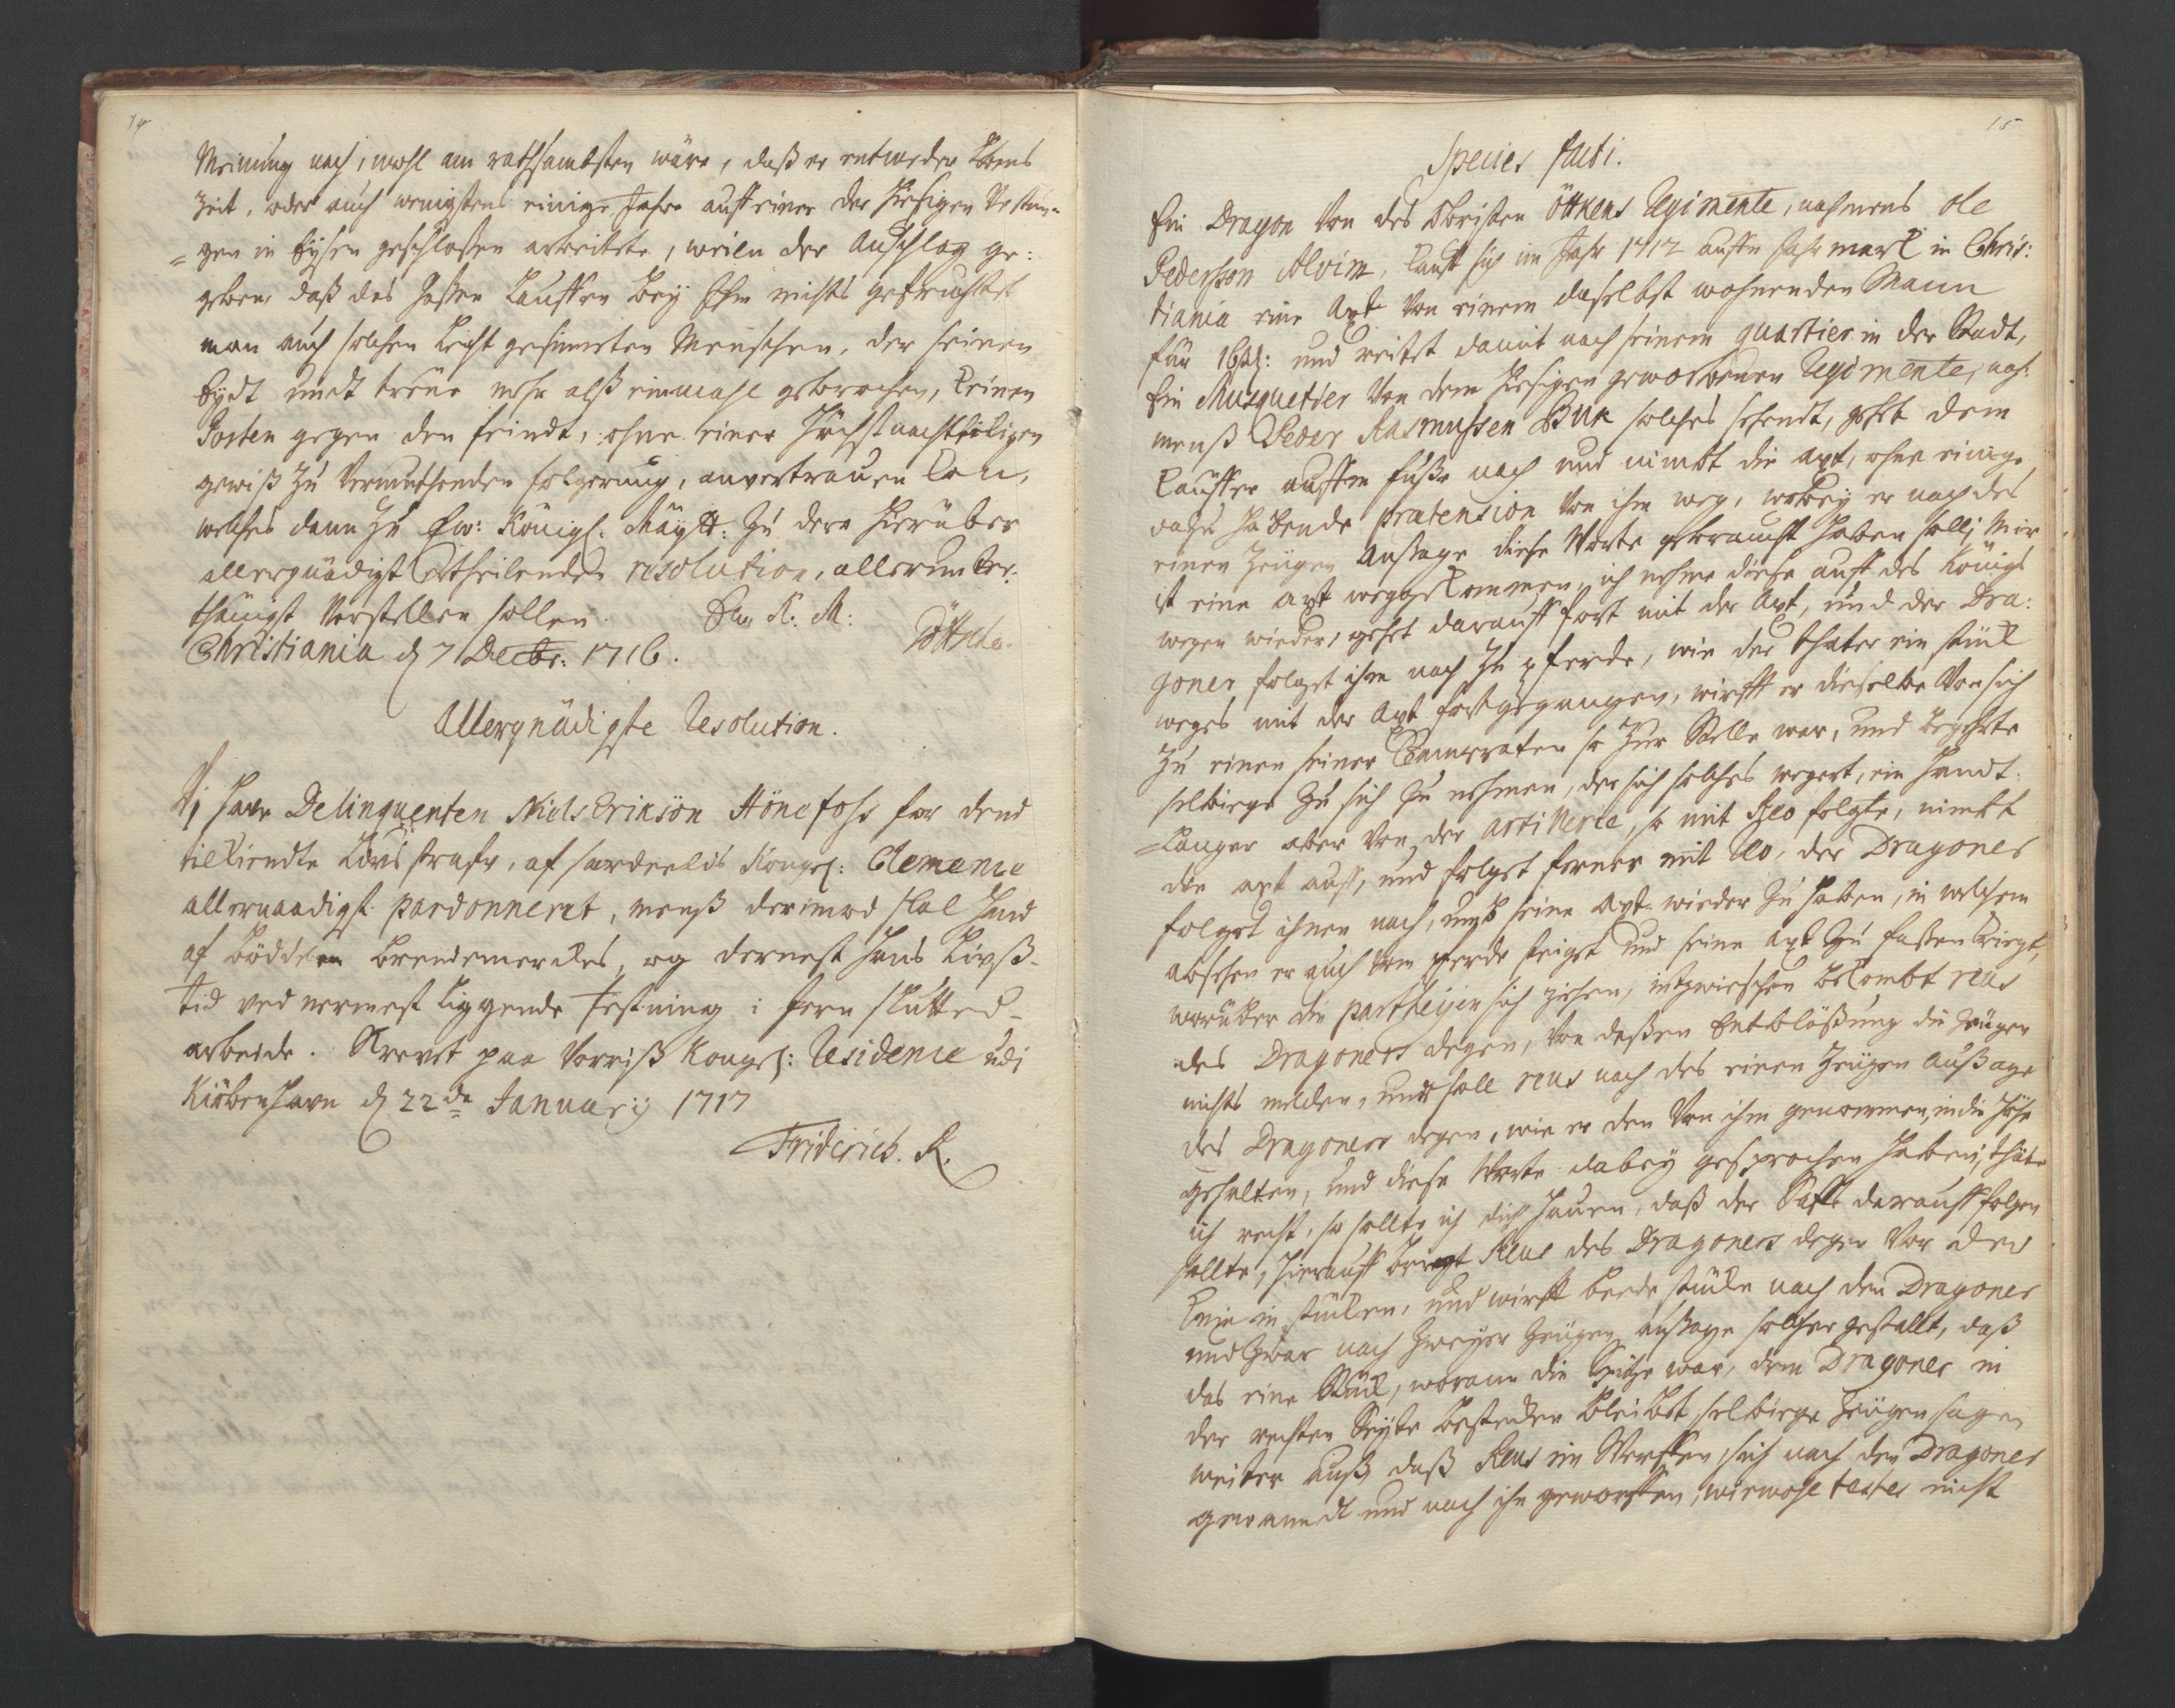 14
Meinung nach, wohl am rathsambsten wäre, daß er entweder Lebens
Zeit, oder auch wenigstens einige Jahre auff einer der hiesigen Vestun-
=gen in Eysen geschloßen arbeitete, weilen der Außschlag ge:
geben daß das Gaßen Lauffen bey Ihm nichts gefruchtet
man auch solchen leicht gesinneten Menschen, der seinen
Eydt undt treue mehr alß einmahl gebrochen, keinen
Posten gegen den feindt, ohne einer Höchst nachtheiligen
gewiß zu vermuthenden folgerung, anvertrauen kan,
welches dann zu Ew: Königl: Mäytt: zu dero hierüber
allergnädigst ertheilenden resolution, allerunter:
thänigst vorstellen sollen. Ew. K: M:
Christiania d 7 Decbr: 1716.
Allergnädigste Resolution.
Vi have Delinquenten Niels Erikson Hönefoss for dend
tilkiendte Livs straffe, af særdeelis Kongel: Clemence
allernaadigst pardonneret, menß derimod skal hand
af bödelen brendemerkes, og dernest hans Livß-
tid ved nermest liggende Festning i Jern slutted
arbeide. Skrevet paa vorriß Kongel: Residence udi
Kiöbenhavn d 22de Januarij 1717
Friderich. R.
15
Species facti.
Ein Dragon von des Obristen Öttkens Regimente, nahmens Ole
Pedersson Alvim, kaufft sich im Jahr 1712 auffm Jahrmarkt in Chris:
tiania eine Axt von einem daselbst wohnenden Mann
für 16 ßl: und reitet damit nach seinem quartier in der Stadt,
Ein Musquetier von dem hiesigen geworbenen Regimente, nah:
menß Peder Rasmussen Buk solches sehendt, gehet dem
Käuffer auffm fuße nach und nimbt die axt, ohne einige
dazu habende prætension von ihm weg, wobey er nach des
einen Zeugen Außage diese Worte gebraucht haben soll; Mir
ist eine axt weggekommen, ich nehme diese auff des Königs
wegen wieder, gehet darauff fort mit der Axt, und der Dra:
goner folget ihm nach zu pferde, wie der thäter ein stück
weges mit der Axt fortgegangen, wirfft er dieselbe von sich
zu einen seiner Cameraten so zur Stelle war, und begehrte
selbige zu sich zu nehmen, der sich solches wegert, ein Handt:
=langer aber von der Artillerie, so mit Reo folgte, nimbt
die axt auff, und folget ferner mit Reo, der Dragoner
folget ihnen nach, umb seine Axt wieder zu haben, in welchem
absehen er auch vom pferde steiget und seine axt zu faßen kriegt,
worüber die partheyen sich ziehen, intzwischen bekombt reus
des Dragoners degen, von deßen Entblößung die Zeugen
nichts melden, undt soll reus nach des einen Zeugen Außage
des Dragoners degen, wie er den von ihm genommen, in die Höhe
gehalten, und diese Worte dabey gesprochen haben; thäte
ich recht, so sollte ich dich hauen, daß der Safft darauff folgen
sollte, hierauff bricht Reus des Dragoners degen vor dem
Knie in stücken, und wirfft beede stücke nach den Dragoner
und zwar nach zweyer Zeugen außage solcher gestallt, daß
das eine Stück, woran die Spitze war, dem Dragoner in
der rechten Seyte bestecken bleibet, selbige Zeugen sagen
weiter auß, daß Reus im Werffen sich nach den Dragoner
gewandt und nach ihn geworffen, wiewohl testes nicht